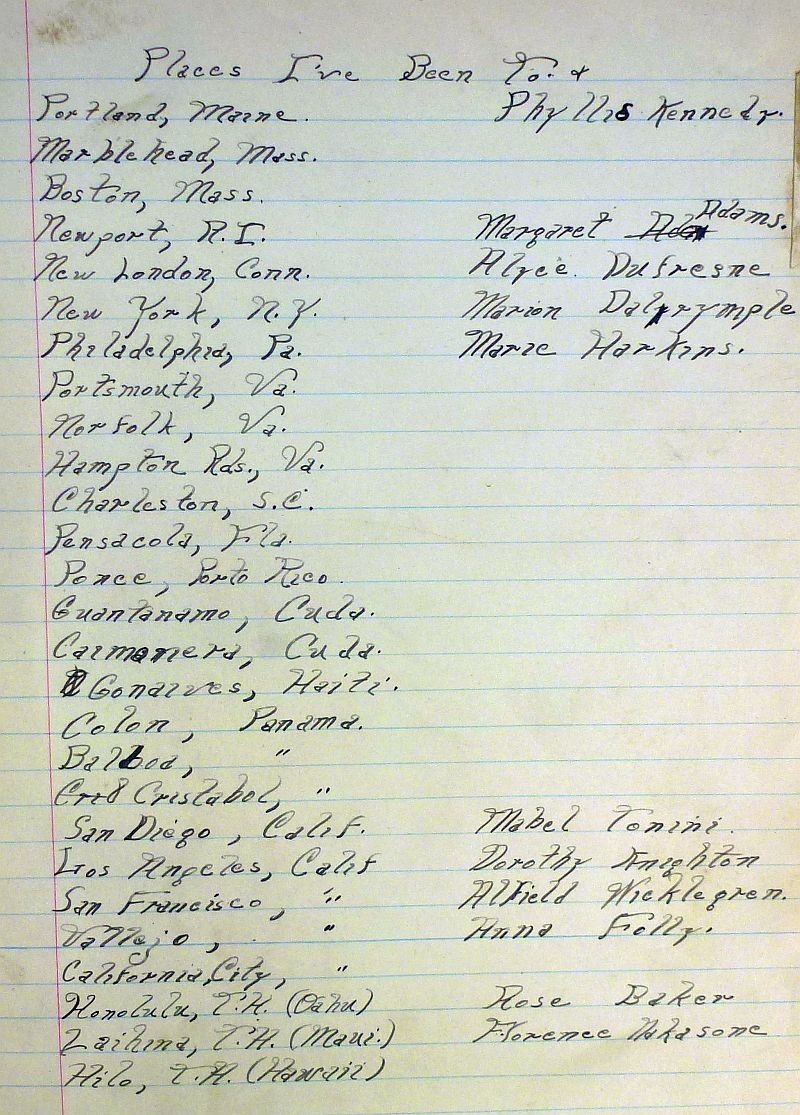 Places I've Been To. &
Portland, Maine. Phyllis Kennedy.
Marblehead, Mass.
Boston, Mass.
Newport, R.I. Margaret Adams.
New London, Conn. Alyce Dufresne
New York, N.Y. Marion Dalrymple
Philadelphia, Pa. Marie Harkins.
Portsmouth, Va.
Norfolk, Va.
Hampton Rds., Va.
Charleston, S.C.
Pensacola, Fla.
Ponce, Porto Rico.
Guantanamo, Cuda.
Caimanera, Cuda.
Gonaives, Haiti.
Colon, Panama.
Balboa, "
Cristabol, "
San Diego, Calif. Mabel Tonini.
Los Angeles, Calif Dorothy Knighton
San Francisco, " Alfield Wicklegren.
Vallejo, " Anna Folly.
California City, "
Honolulu, T.H. (Oahu) Rose Baker
Laihina, T.H. (Maui.) Florence Nakasone
Hilo, T.H. (Hawaii)